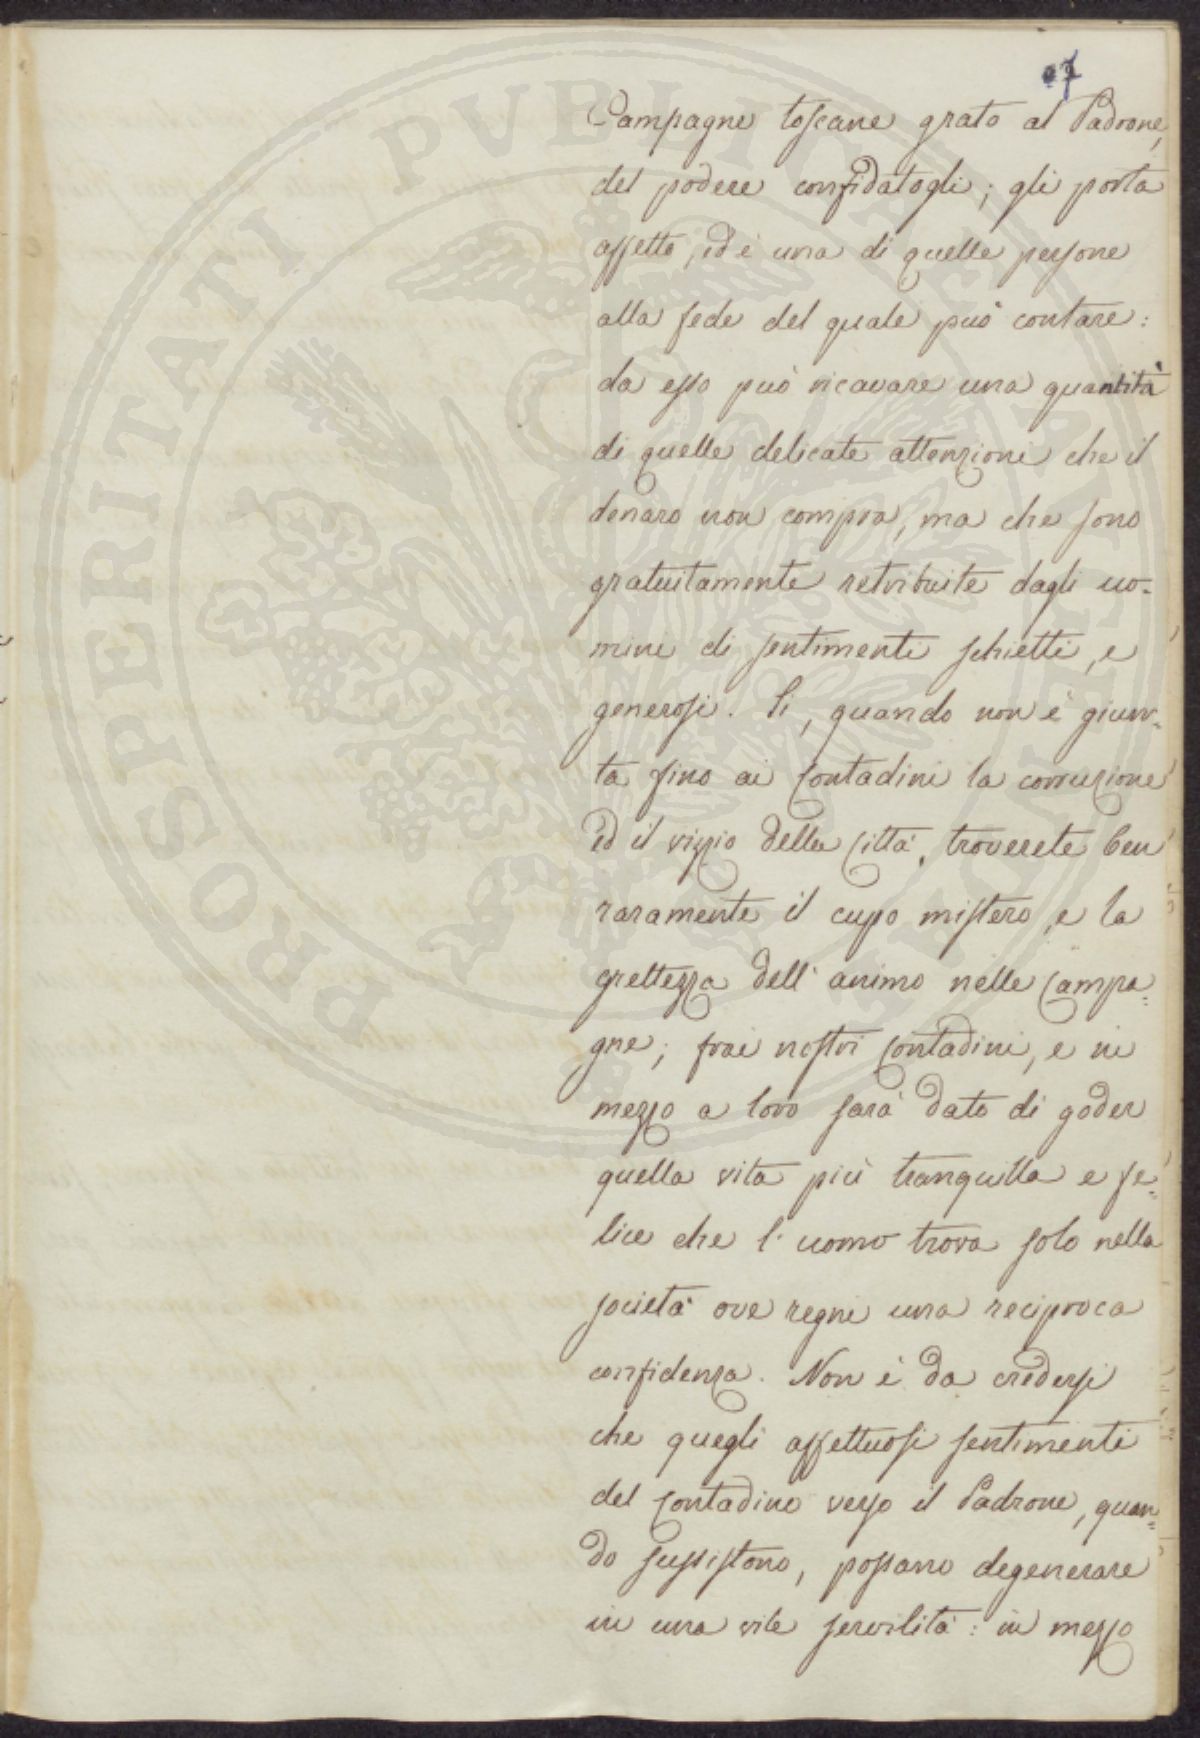 PROSPERITATI PVBLICAE AVGENDAE
07
Campagne toscane grato al Padrone,
del podere confidatogli; gli porta
affetto, ed è una di quelle persone
alla fede del quale può contare:
da esso può ricavare una quantità
di quelle delicate attenzioni che il
denaro non compra, ma che sono
gratuitamente retribuite dagli uo-
mini di sentimenti schietti, e
generosi. Si, quando non è giun-
ta fino ai Contadini la corruzione
ed il vizzio della Città, troverete ben
raramente il cupo mistero, e la
grettezza dell'animo nelle Campa-
gne; frai nostri Contadini, e in
mezzo a loro sarà dato di goder
quella vita più tranquilla e fe-
lice che l'uomo trova solo nella
società ove regni una reciproca
confidenza. Non è da credersi
che quegli affettuosi sentimenti
del Contadino verso il Padrone, quan-
do sussistono, possano degenerare
in una vile servilità: in mezzo